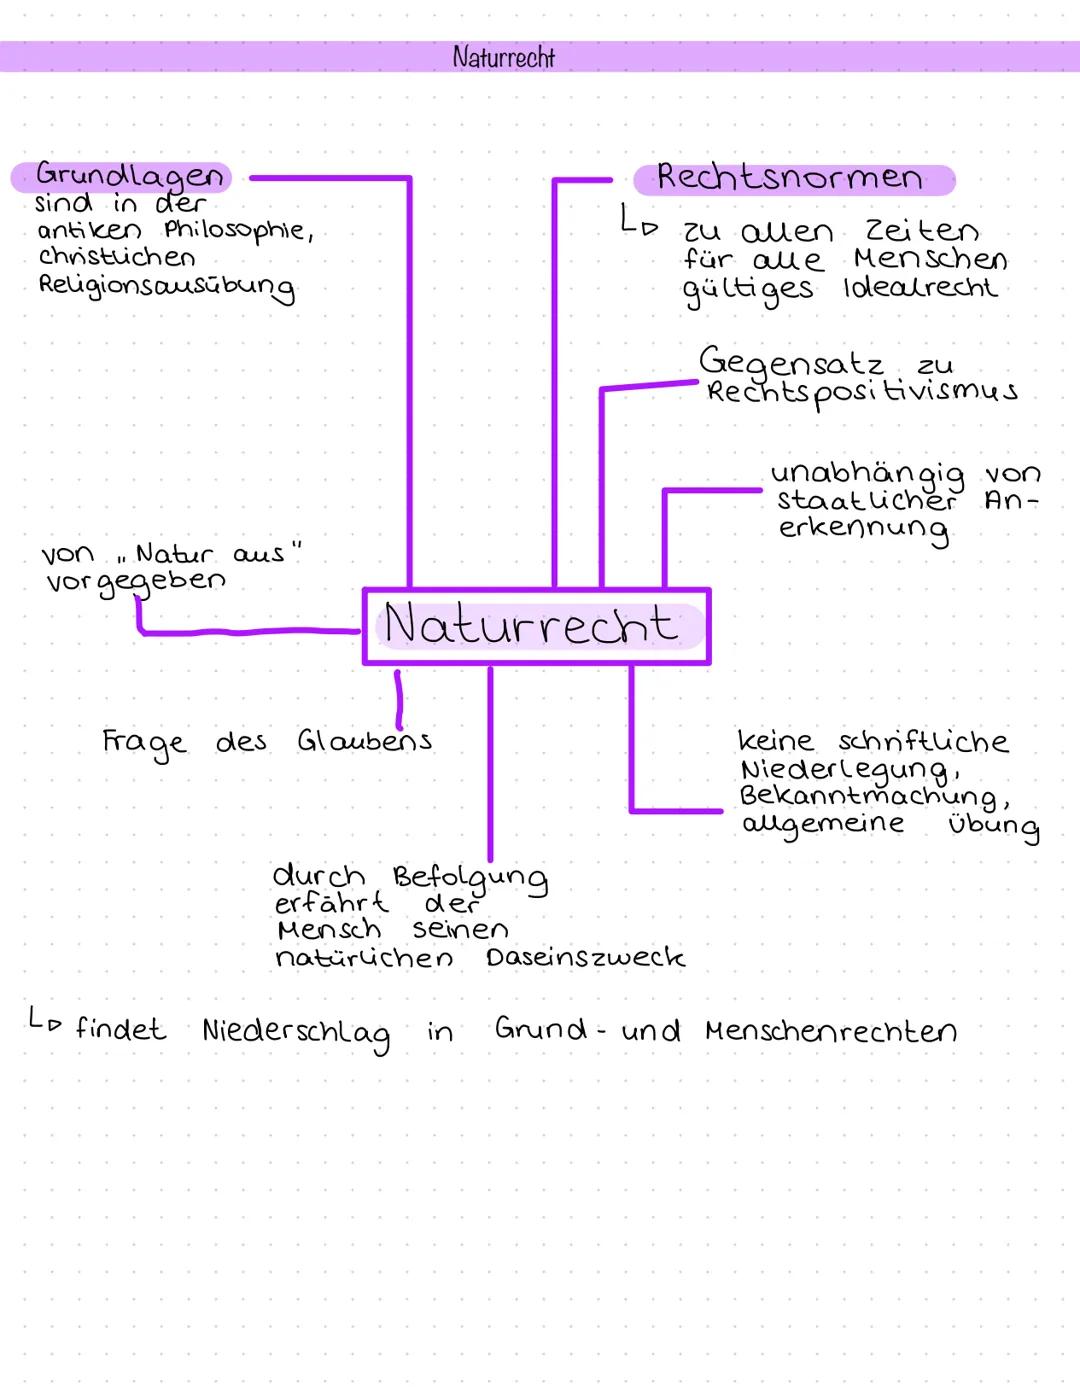 Naturrecht
Grundlagen
sind in der
antiken Philosophie,
christlichen
Religionsausübung
Rechtsnormen
↳ zu allen Zeiten
für alle Menschen
gültiges Idealrecht
Gegensatz zu
Rechtspositivismus
unabhängig von
staatlicher An-
erkennung
von „Natur aus"
vorgegeben
Naturrecht
Frage des Glaubens
keine schriftliche
Niederlegung,
Bekanntmachung,
allgemeine Übung
durch Befolgung
erfährt der
Mensch seinen
natürlichen Daseinszweck
↳ findet Niederschlag in Grund- und Menschenrechten